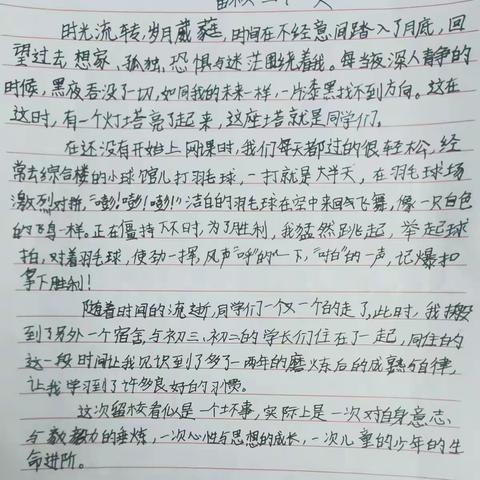 时光流转,岁月葳蕤,时间在不经意间踏入了月底,回
望过去想家、孤独、恐惧与迷茫围绕着我。每当夜深人静的
时候,黑夜吞没了一切,如同我的未来一样,一片漆黑找不到方向。这在
这时,有一个灯塔亮了起来,这座塔就是同学们。
在还没有开始上网课时,我们每天都过的很轻松,经
常去综合楼的小球馆儿打羽毛球,一打就是大半天,在羽毛球场
激烈对拼,“嘭!嘭!嘭!”洁白的羽毛球在空中来回飞舞,像一只白色
的飞鸟一样。正在僵持下不时,为了胜利,我猛然跳起,举起球
拍,对着羽毛球,使劲一挥,风声“呼”的一下,“啪”的一声,一记爆扣
拿下胜利!
随着时间的流逝,同学们一个又一个的走了,此时,我搬
到了另外一个宿舍与初三、初二的学长们住在了一起,同住的
这一段时间让我见识到了多了一两年的磨炼后的成熟与自律,
让我学习到了许多良好的习惯。
这次留校看似是一个坏事,实际上是一次对自身意志、
与毅力的垂炼,一次心性与思想的成长,一次儿童的少年的生
命进阶。